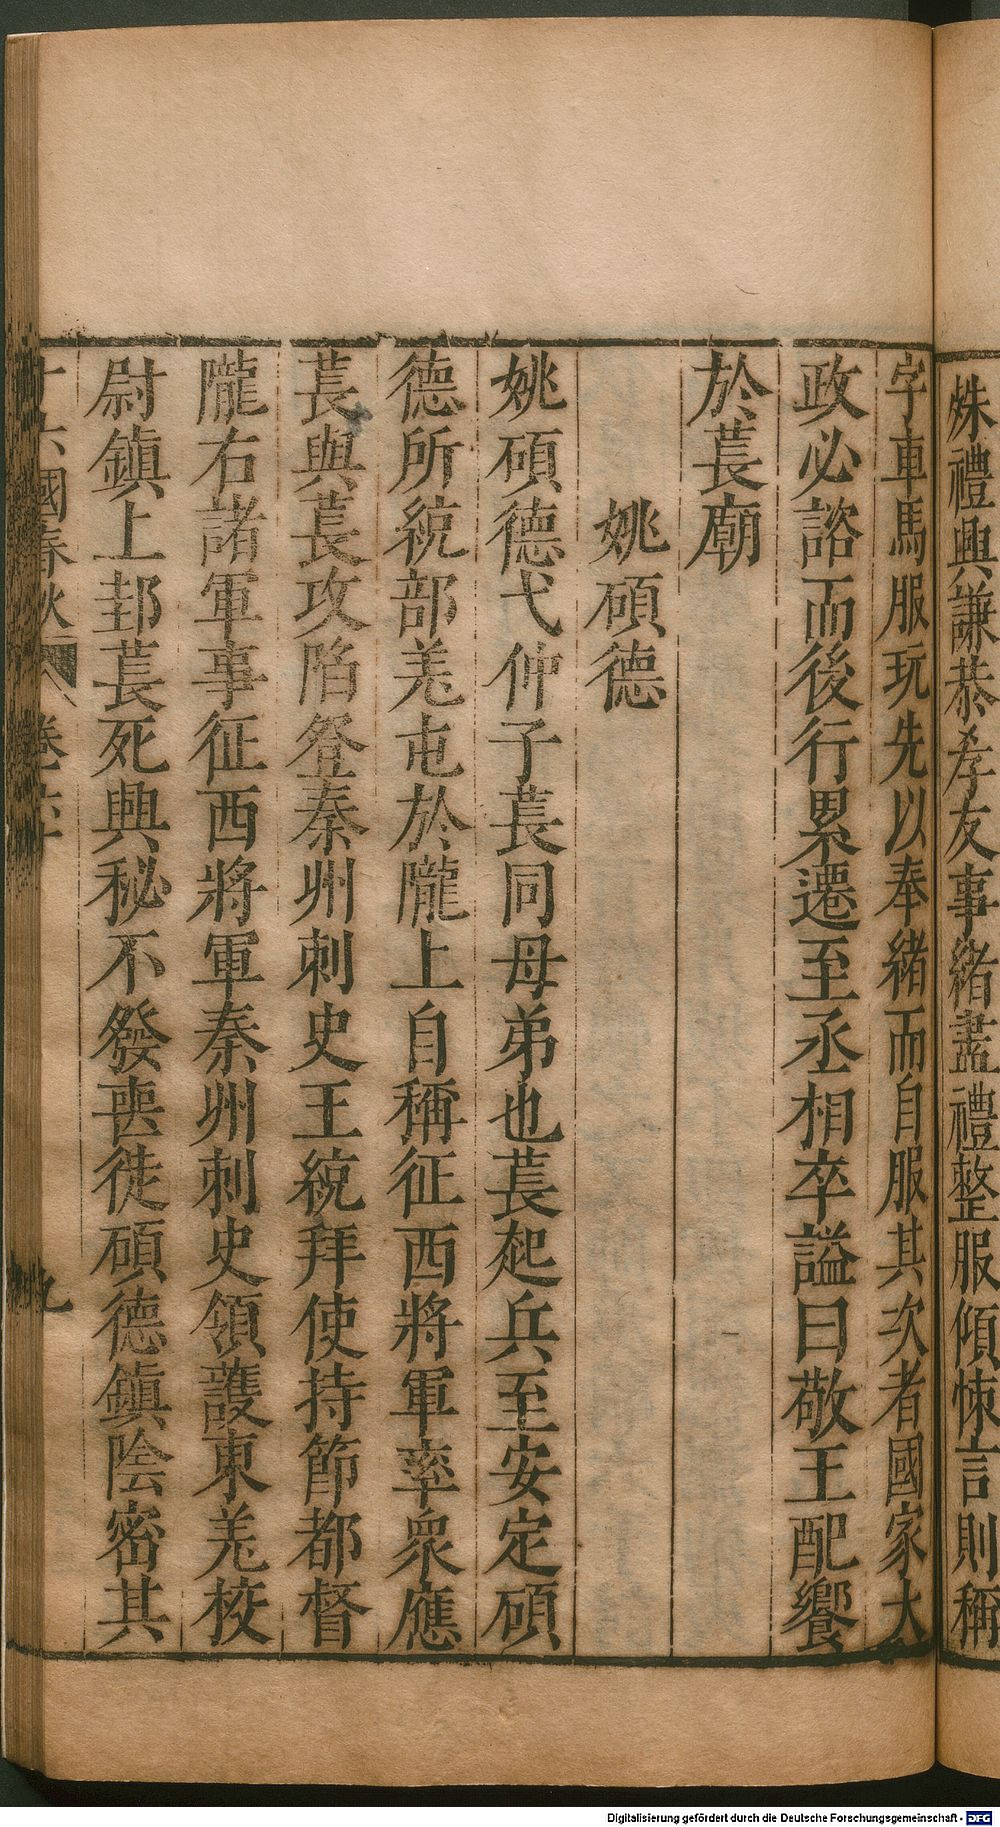 殊禮興謙恭孝友事緒盡禮整服傾悚言則稱
字車馬服玩先以奉緒而自服其次者國家大
政必諮而後行累遷至丞相卒謚曰敬王配饗
於萇廟
姚碩德
姚碩德弋仲子萇同母弟也萇起兵至安定碩
德所統部羌屯於隴上自稱征西將軍率衆應
萇與萇攻陷登秦州刺史王統拜使持節都督
隴右諸軍事征西將軍秦州刺史領護東羌校
尉鎮上邽萇死興秘不發喪徙碩德鎮陰密其
十六國春秋 卷六十 九
Digitalisierung gefördert durch die Deutsche Forschungsgemeinschaft - DFG